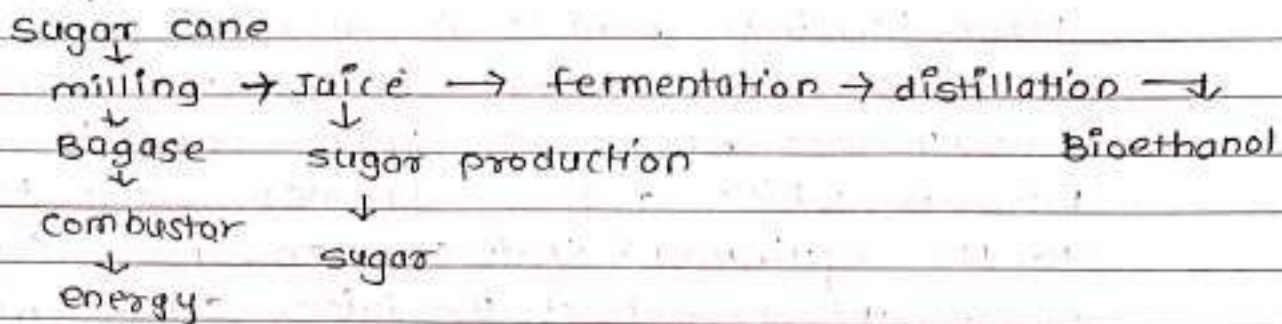 sugar cane
↓
milling → Juice → fermentation → distillation →↓
↓ ↓
Bagase sugar production Bioethanol
↓ ↓
combustar sugar
↓
energy-